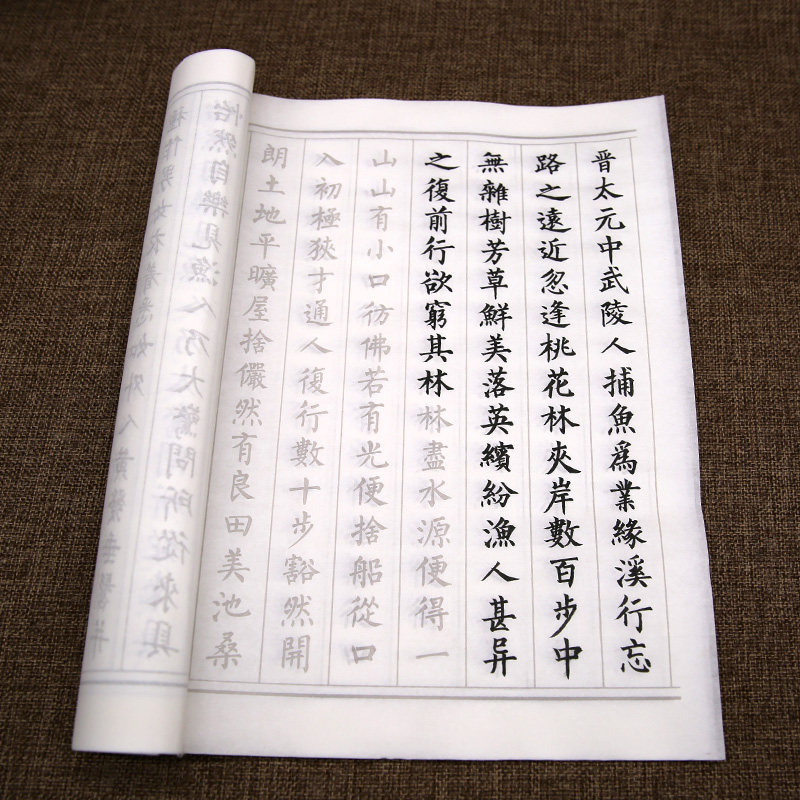 晋太元中武陵人捕魚爲業緣溪行忘
路之遠近忽逢桃花林夾岸數百步中
無雜樹芳草鮮美落英繽紛漁人甚异
之復前行欲窮其林林盡水源便得一
山山有小口彷佛若有光便捨船從口
入初極狹才通人復行數十步豁然開
朗土地平曠屋捨儼然有良田美池桑
怡然自樂見漁人乃大驚問所從來具